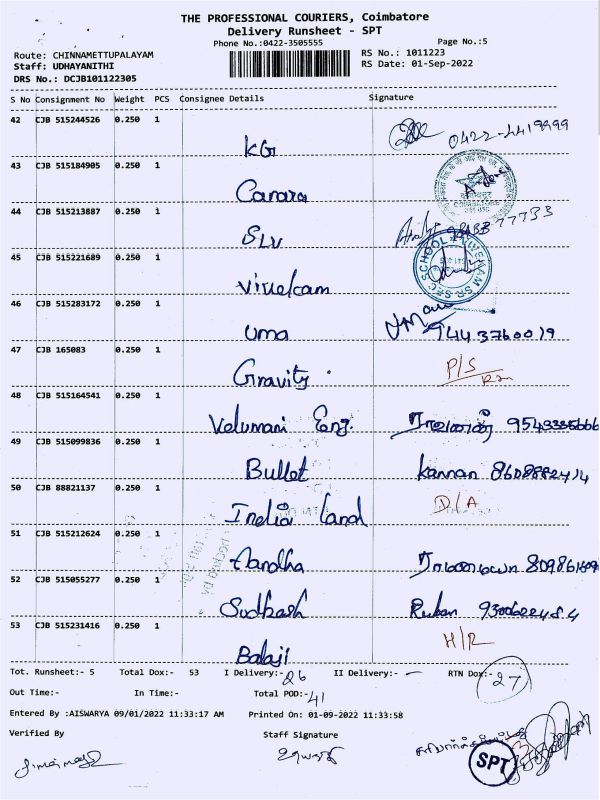 THE PROFESSIONAL COURIERS, Coimbatore
Delivery Runsheet - SPT
Phone No.:0422-3505555 Page No.:5
Route: CHINNAMETTUPALAYAM RS No.: 1011223
Staff: UDHAYANITHI RS Date: 01-Sep-2022
DRS No.: DCJB101122305
S No Consignment No Weight PCS Consignee Details Signature
42 CJB 515244526 0.250 1
KG 0422-4419999
43 CJB 515184905 0.250 1
Canara
44 CJB 515213887 0.250 1
SLV
45 CJB 515221689 0.250 1
Vivekam
46 CJB 515283172 0.250 1
uma 9443760019
47 CJB 165083 0.250 1
Gravity P/S
48 CJB 515164541 0.250 1
Velumani Eng.
49 CJB 515099836 0.250 1
Bullet Kannan
50 CJB 88821137 0.250 1
India Land D/A
51 CJB 515212624 0.250 1
Aandha
52 CJB 515055277 0.250 1
Sudkash Ruban
53 CJB 515231416 0.250 1
Balaji H/R
Tot. Runsheet:- 5 Total Dox:- 53 I Delivery:- 26 II Delivery:- — RTN Dox:- 27
Out Time:- In Time:- Total POD:- 41
Entered By :AISWARYA 09/01/2022 11:33:17 AM Printed On: 01-09-2022 11:33:58
Verified By Staff Signature
SPT